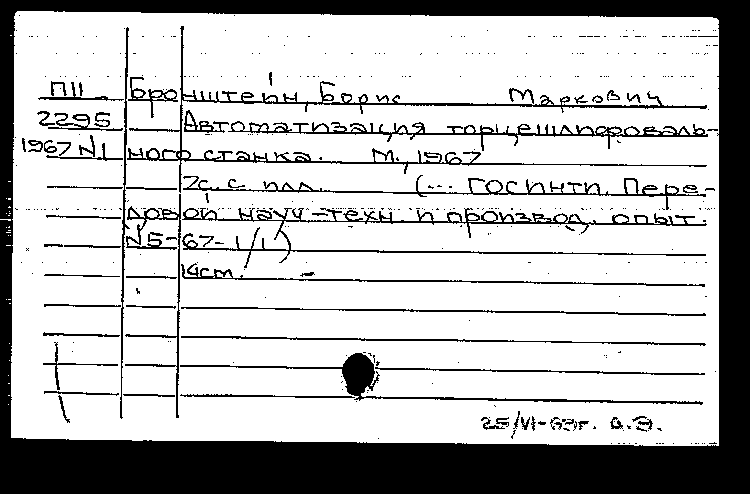 П11 Бронштейн, Борис Маркович
2295 Автоматизация торцешлифоваль-
1967 N1 ного станка. М., 1967
7с. с илл. (... ГОСИНТИ. Пере-
довой науч-техн и производ. опыт.
N5-67-1/1)
14cm. -
25/VI-69г.